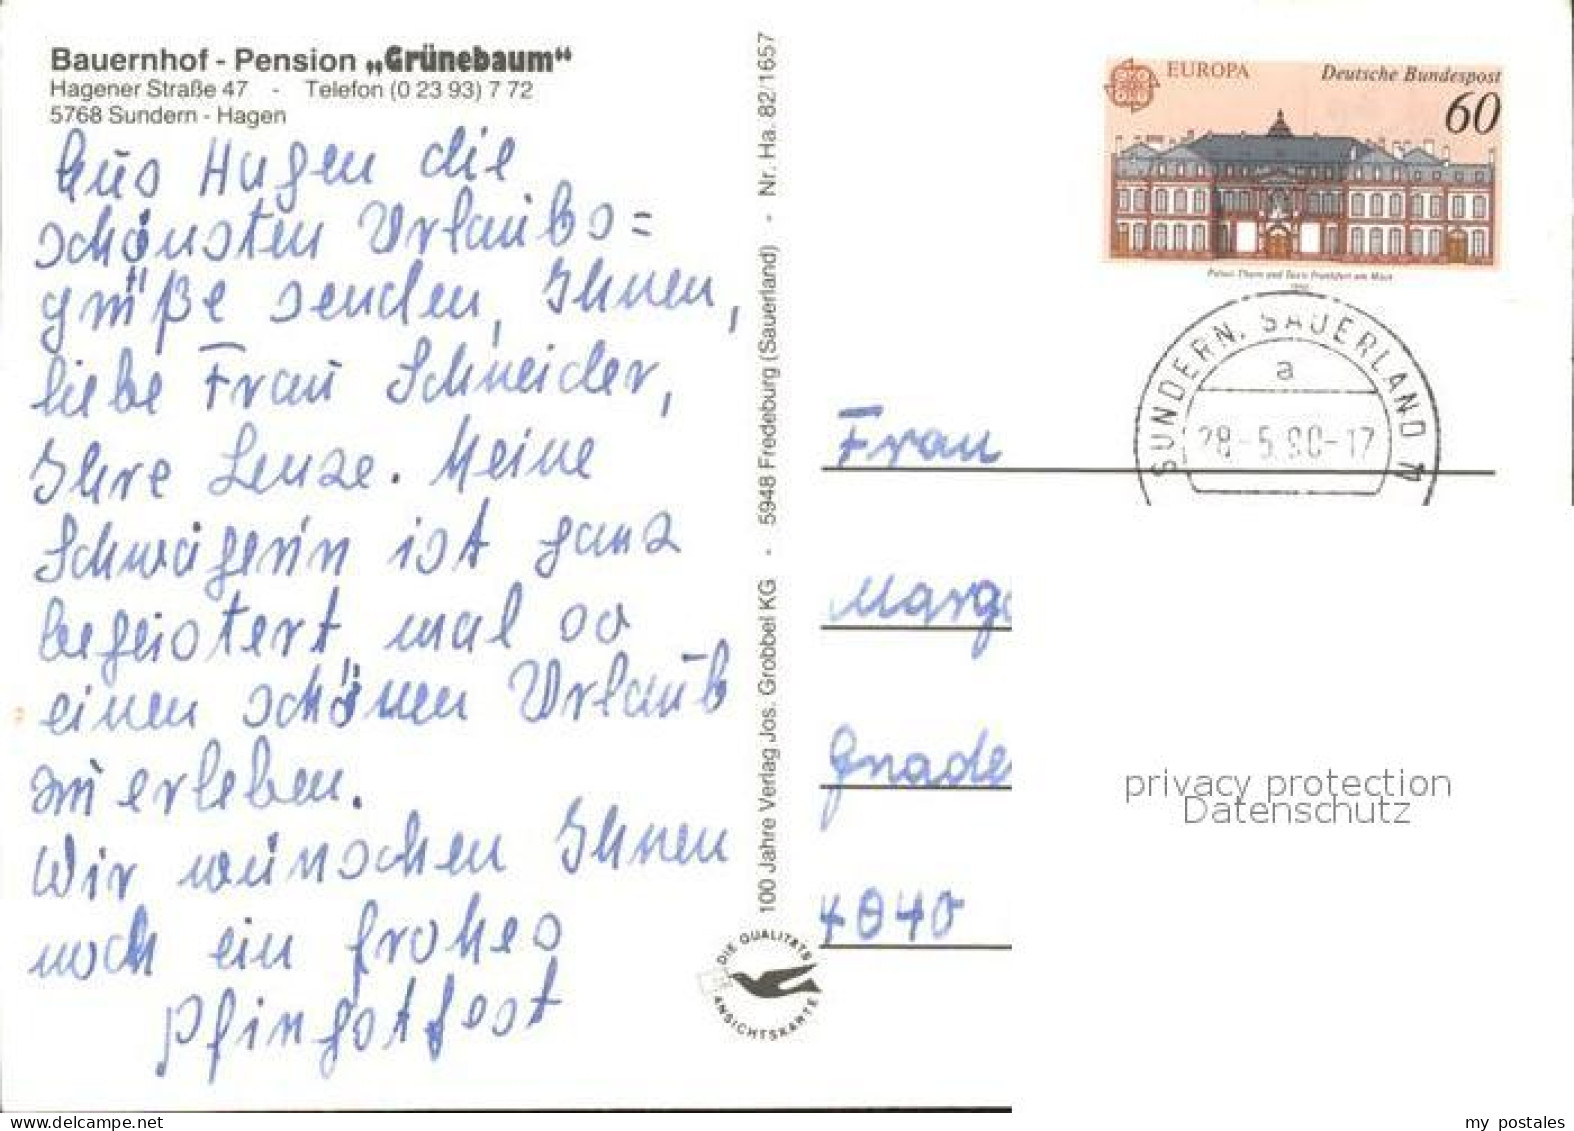 Bauernhof - Pension „Grünebaum“
Hagener Straße 47 - Telefon (0 23 93) 7 72
5768 Sundern - Hagen
Aus Hagen die
schönsten Urlaubs=
grüße senden, Ihnen,
liebe Frau Schneider,
Ihre Lenze. Meine
Schwägerin ist ganz
begeistert, mal so
einen schönen Urlaub
zu erleben.
Wir wünschen Ihnen
noch ein frohes
Pfingstfest
100 Jahre Verlag Jos. Grobbel KG · 5948 Fredeburg (Sauerland) · Nr. Ha. 82/1657
DIE QUALITÄTS
ANSICHTSKARTE
EUROPA
Deutsche Bundespost
60
Palais Thurn und Taxis Frankfurt am Main
1990
SUNDERN, SAUERLAND 1
a
28-5.90-17
Frau
Marga
Gnade
4040
privacy protection
Datenschutz
my postales